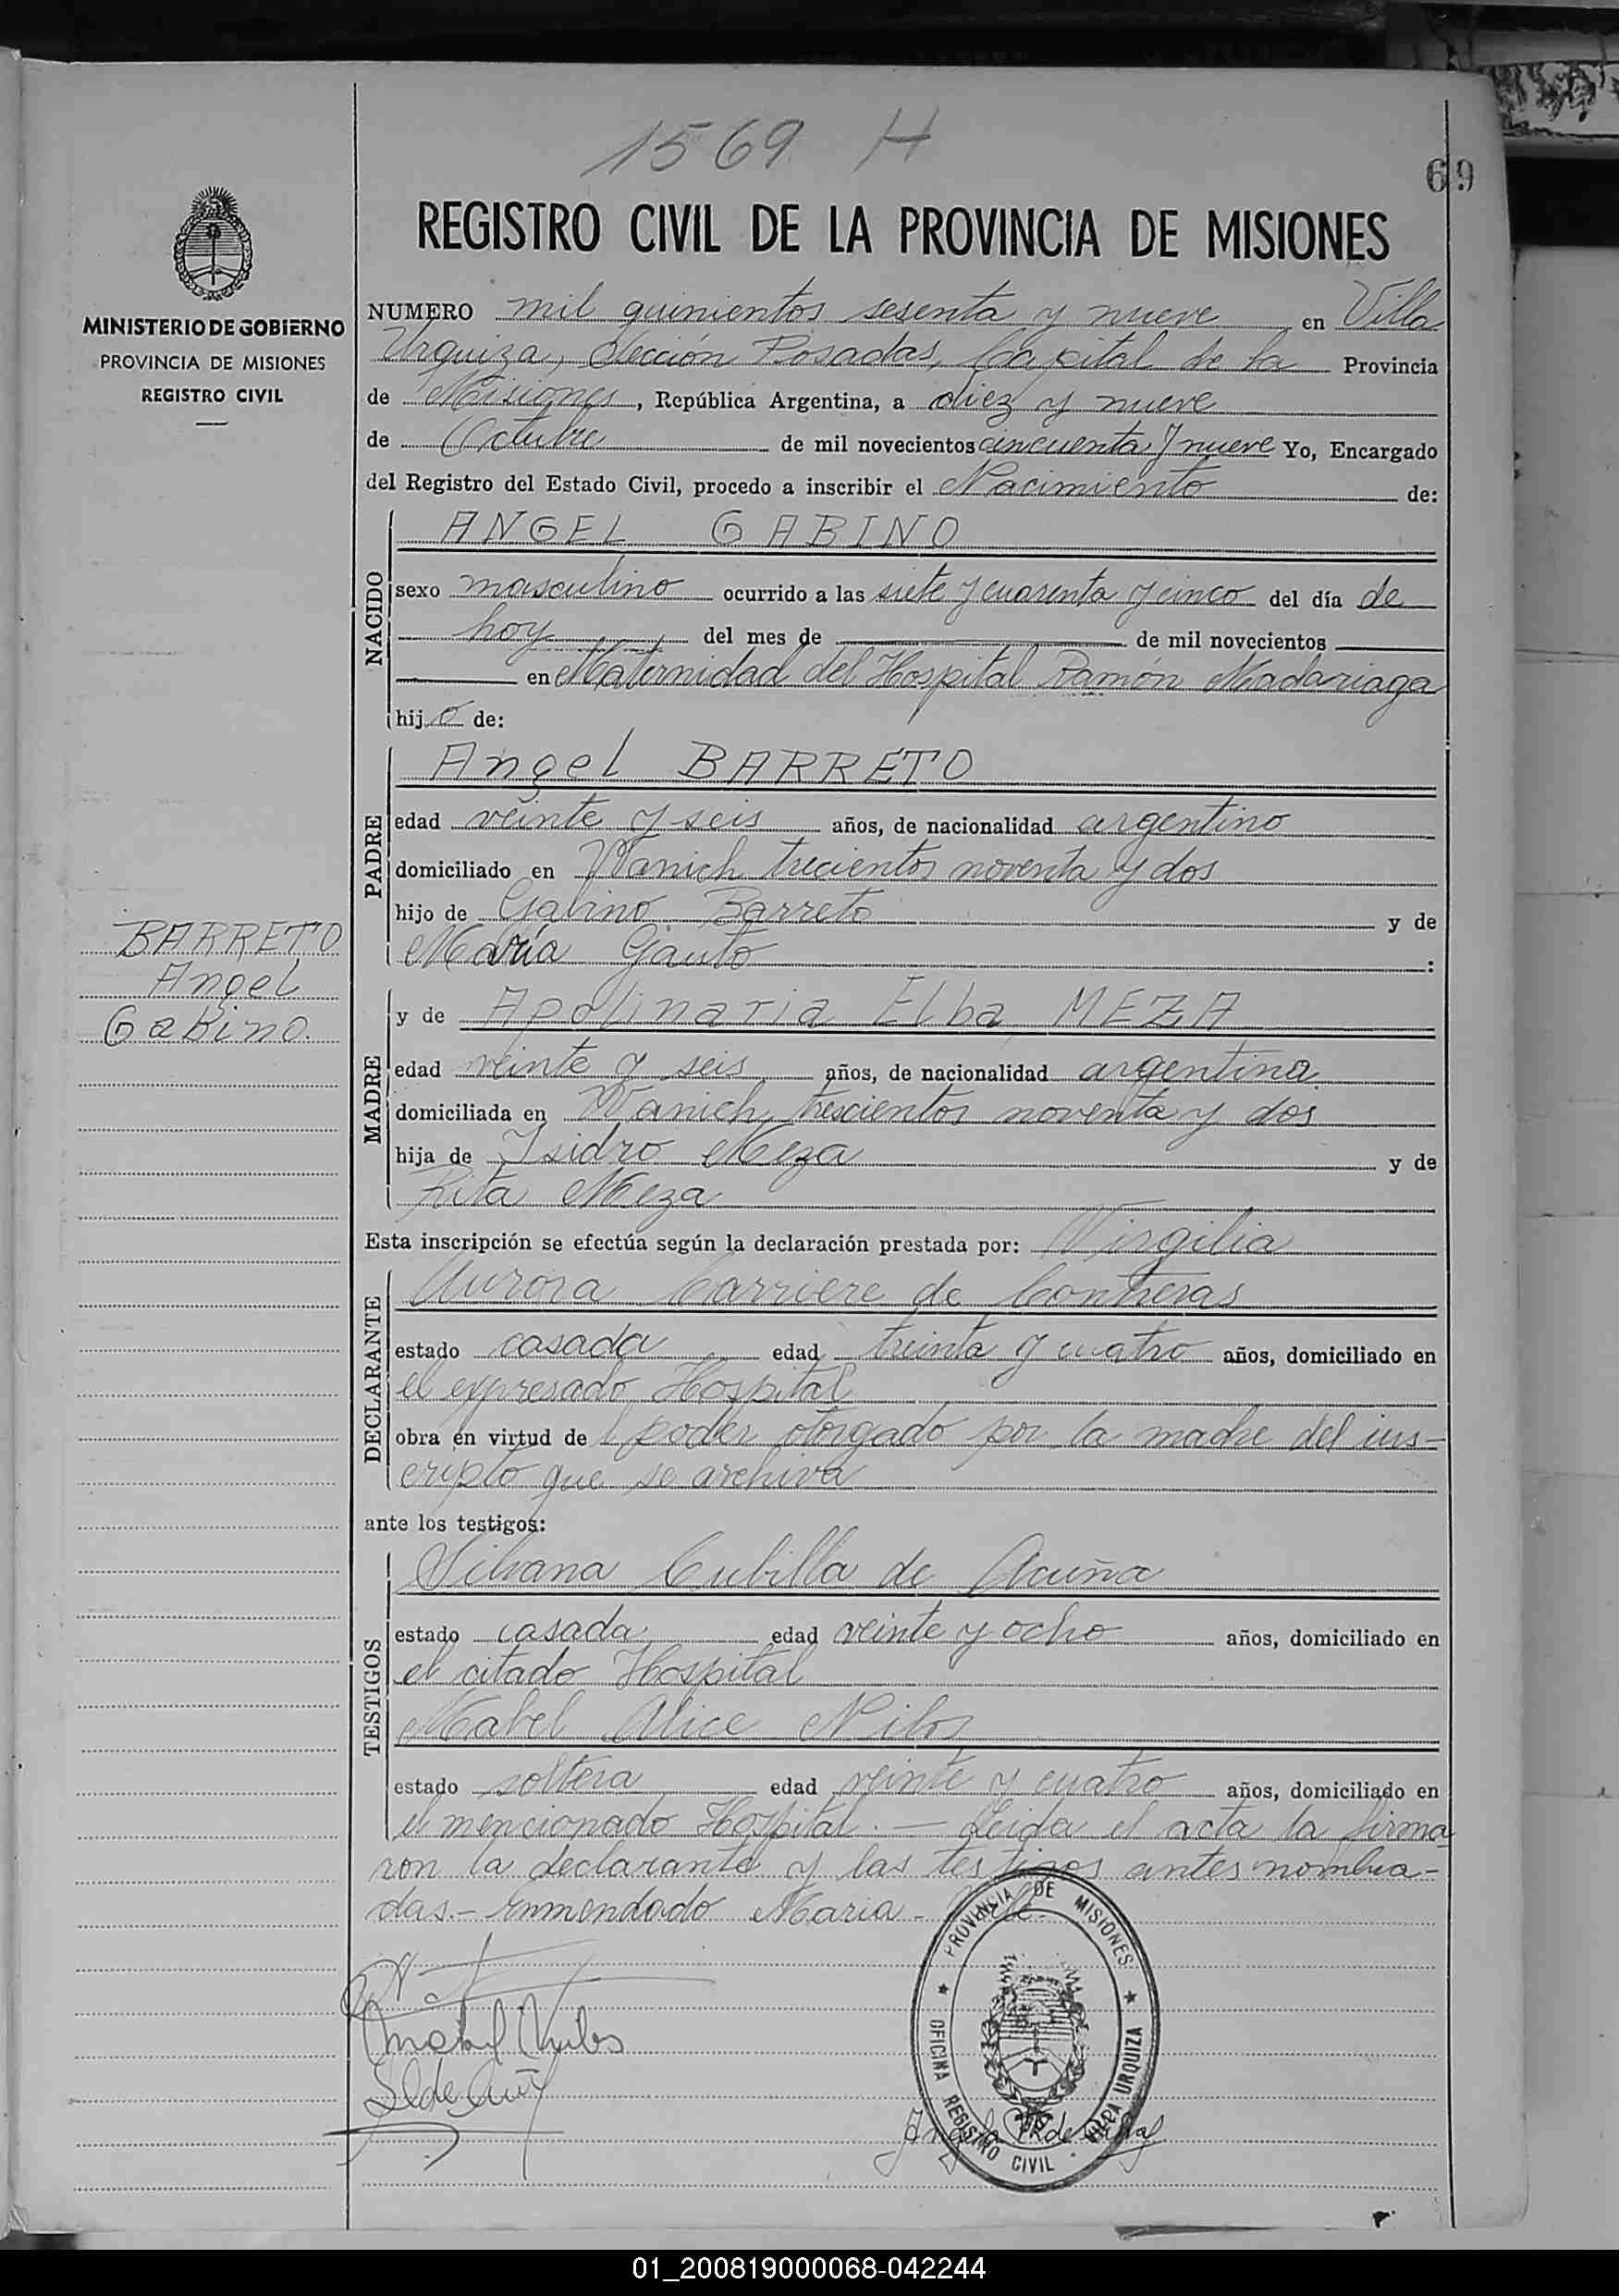 1569 H
69
REGISTRO CIVIL DE LA PROVINCIA DE MISIONES
MINISTERIO DE GOBIERNO
PROVINCIA DE MISIONES
REGISTRO CIVIL
NUMERO mil quinientos sesenta y nueve en Villa
Urquiza, Sección Posadas, Capital de la Provincia
de Misiones, República Argentina, a diez y nueve
de Octubre de mil novecientos cincuenta y nueve Yo, Encargado
del Registro del Estado Civil, procedo a inscribir el Nacimiento de:
NACIDO
ANGEL GABINO
sexo masculino ocurrido a las siete y cuarenta y cinco del día de
hoy del mes de de mil novecientos
en Maternidad del Hospital Ramón Madariaga
hijo de:
PADRE
Angel BARRETO
edad veinte y seis años, de nacionalidad argentino
domiciliado en Wanich trecientos noventa y dos
hijo de Gabino Barreto y de
María Gauto :
BARRETO
Angel
Gabino.
MADRE
y de Apolinaria Elba MEZA
edad veinte y seis años, de nacionalidad argentina
domiciliada en Wanich, trescientos noventa y dos
hija de Isidro Meza y de
Rita Meza
Esta inscripción se efectúa según la declaración prestada por: Virgilia
DECLARANTE
Aurora Carriere de Contreras
estado casada edad treinta y cuatro años, domiciliado en
el expresado Hospital
obra en virtud del poder otorgado por la madre del ins-
cripto que se archiva
ante los testigos:
TESTIGOS
Silvana Cubilla de Acuña
estado casada edad veinte y ocho años, domiciliado en
el citado Hospital
Mabel Alice
estado soltera edad veinte y cuatro años, domiciliado en
el mencionado Hospital. — Leida el acta la firma
ron la declarante y las testigos antes nombra-
das.- Enmendado Maria - Vale.
PROVINCIA DE MISIONES
OFICINA REGISTRO CIVIL · VILLA URQUIZA
01_200819000068-042244